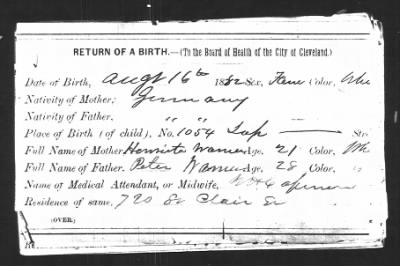 RETURN OF A BIRTH.—(To the Board of Health of the City of Cleveland.)
Date of Birth, Augt 16th 1882 Sex, Fem Color, Whe
Nativity of Mother, Germany
Nativity of Father, " "
Place of Birth (of child), No. 1054 Sup — Str
Full Name of Mother Henrieta Warner Age, 21 Color, Wh
Full Name of Father. Peter Warner Age, 28 Color,
Name of Medical Attendant, or Midwife,
Residence of same, 720 St Clair St
(OVER.)